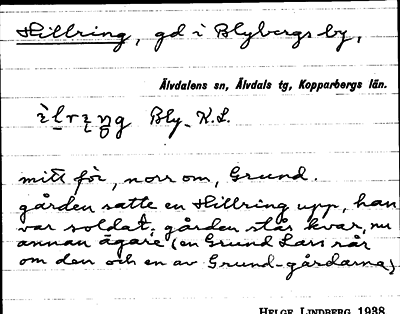 Hillring, gd i Blybergs by,
Älvdalens sn, Älvdals tg, Kopparbergs län.
ìl̠rɪ̨ŋg Bly. K.L.
mitt för, norr om, Grund.
gården satte en Hillring upp, han
var soldat; gården står kvar, nu
annan ägare (en Grund Lars rår
om den och en av Grund-gårdarna)
HELGE LINDBERG 1938